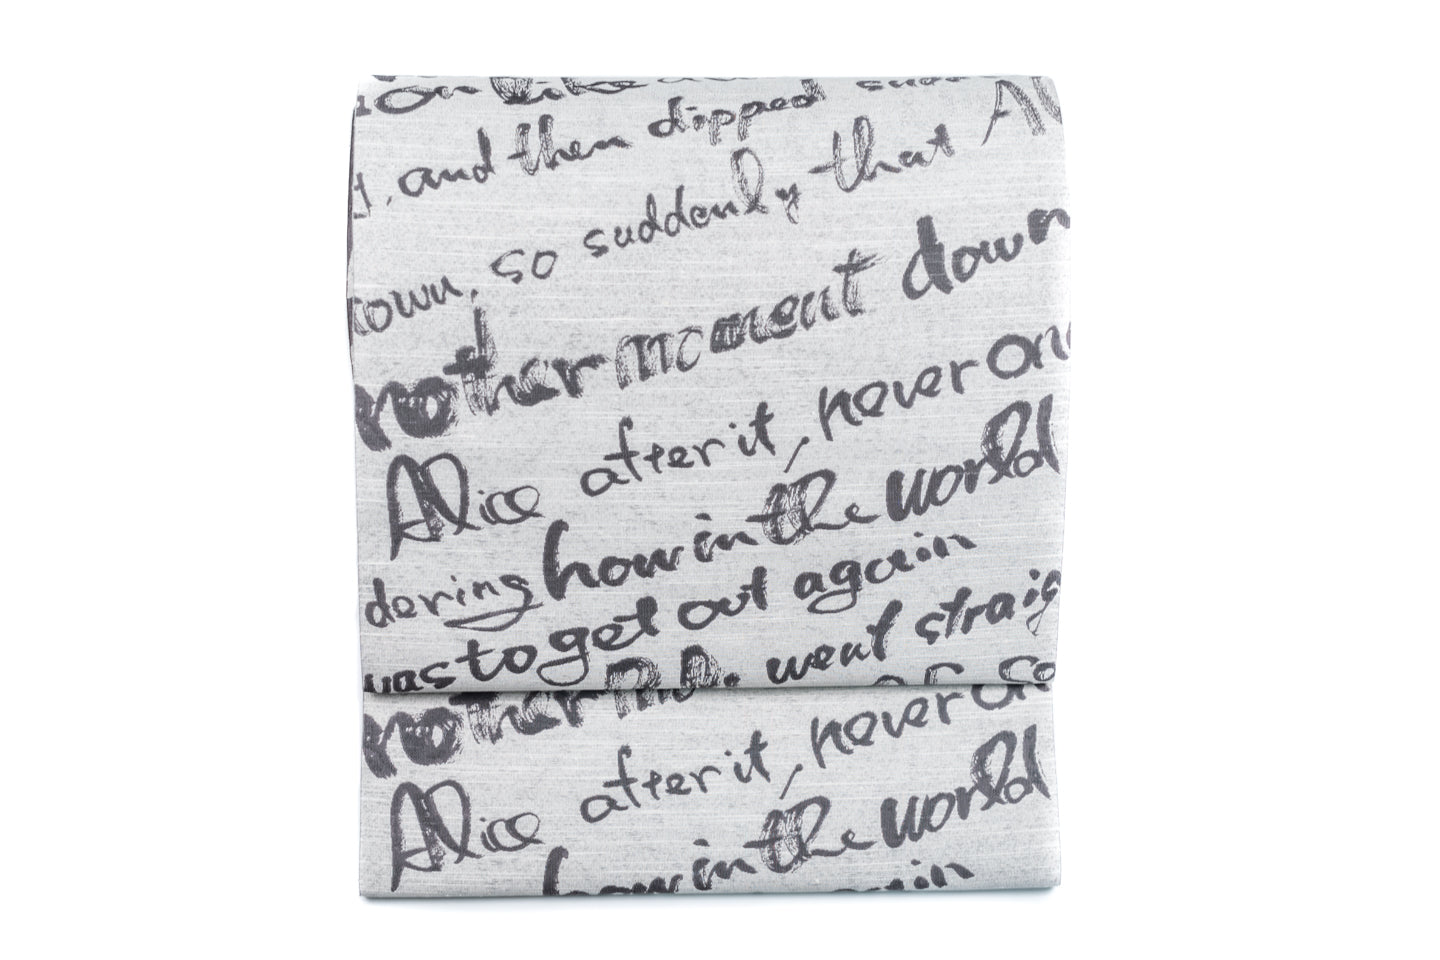 on like a
, and then dipped sudd
own, so suddenly that Al
nother moment down
Alice after it, never onc
dering how in the world
was to get out again
went straig
nother
of so
Alice after it, never
how in the world
again